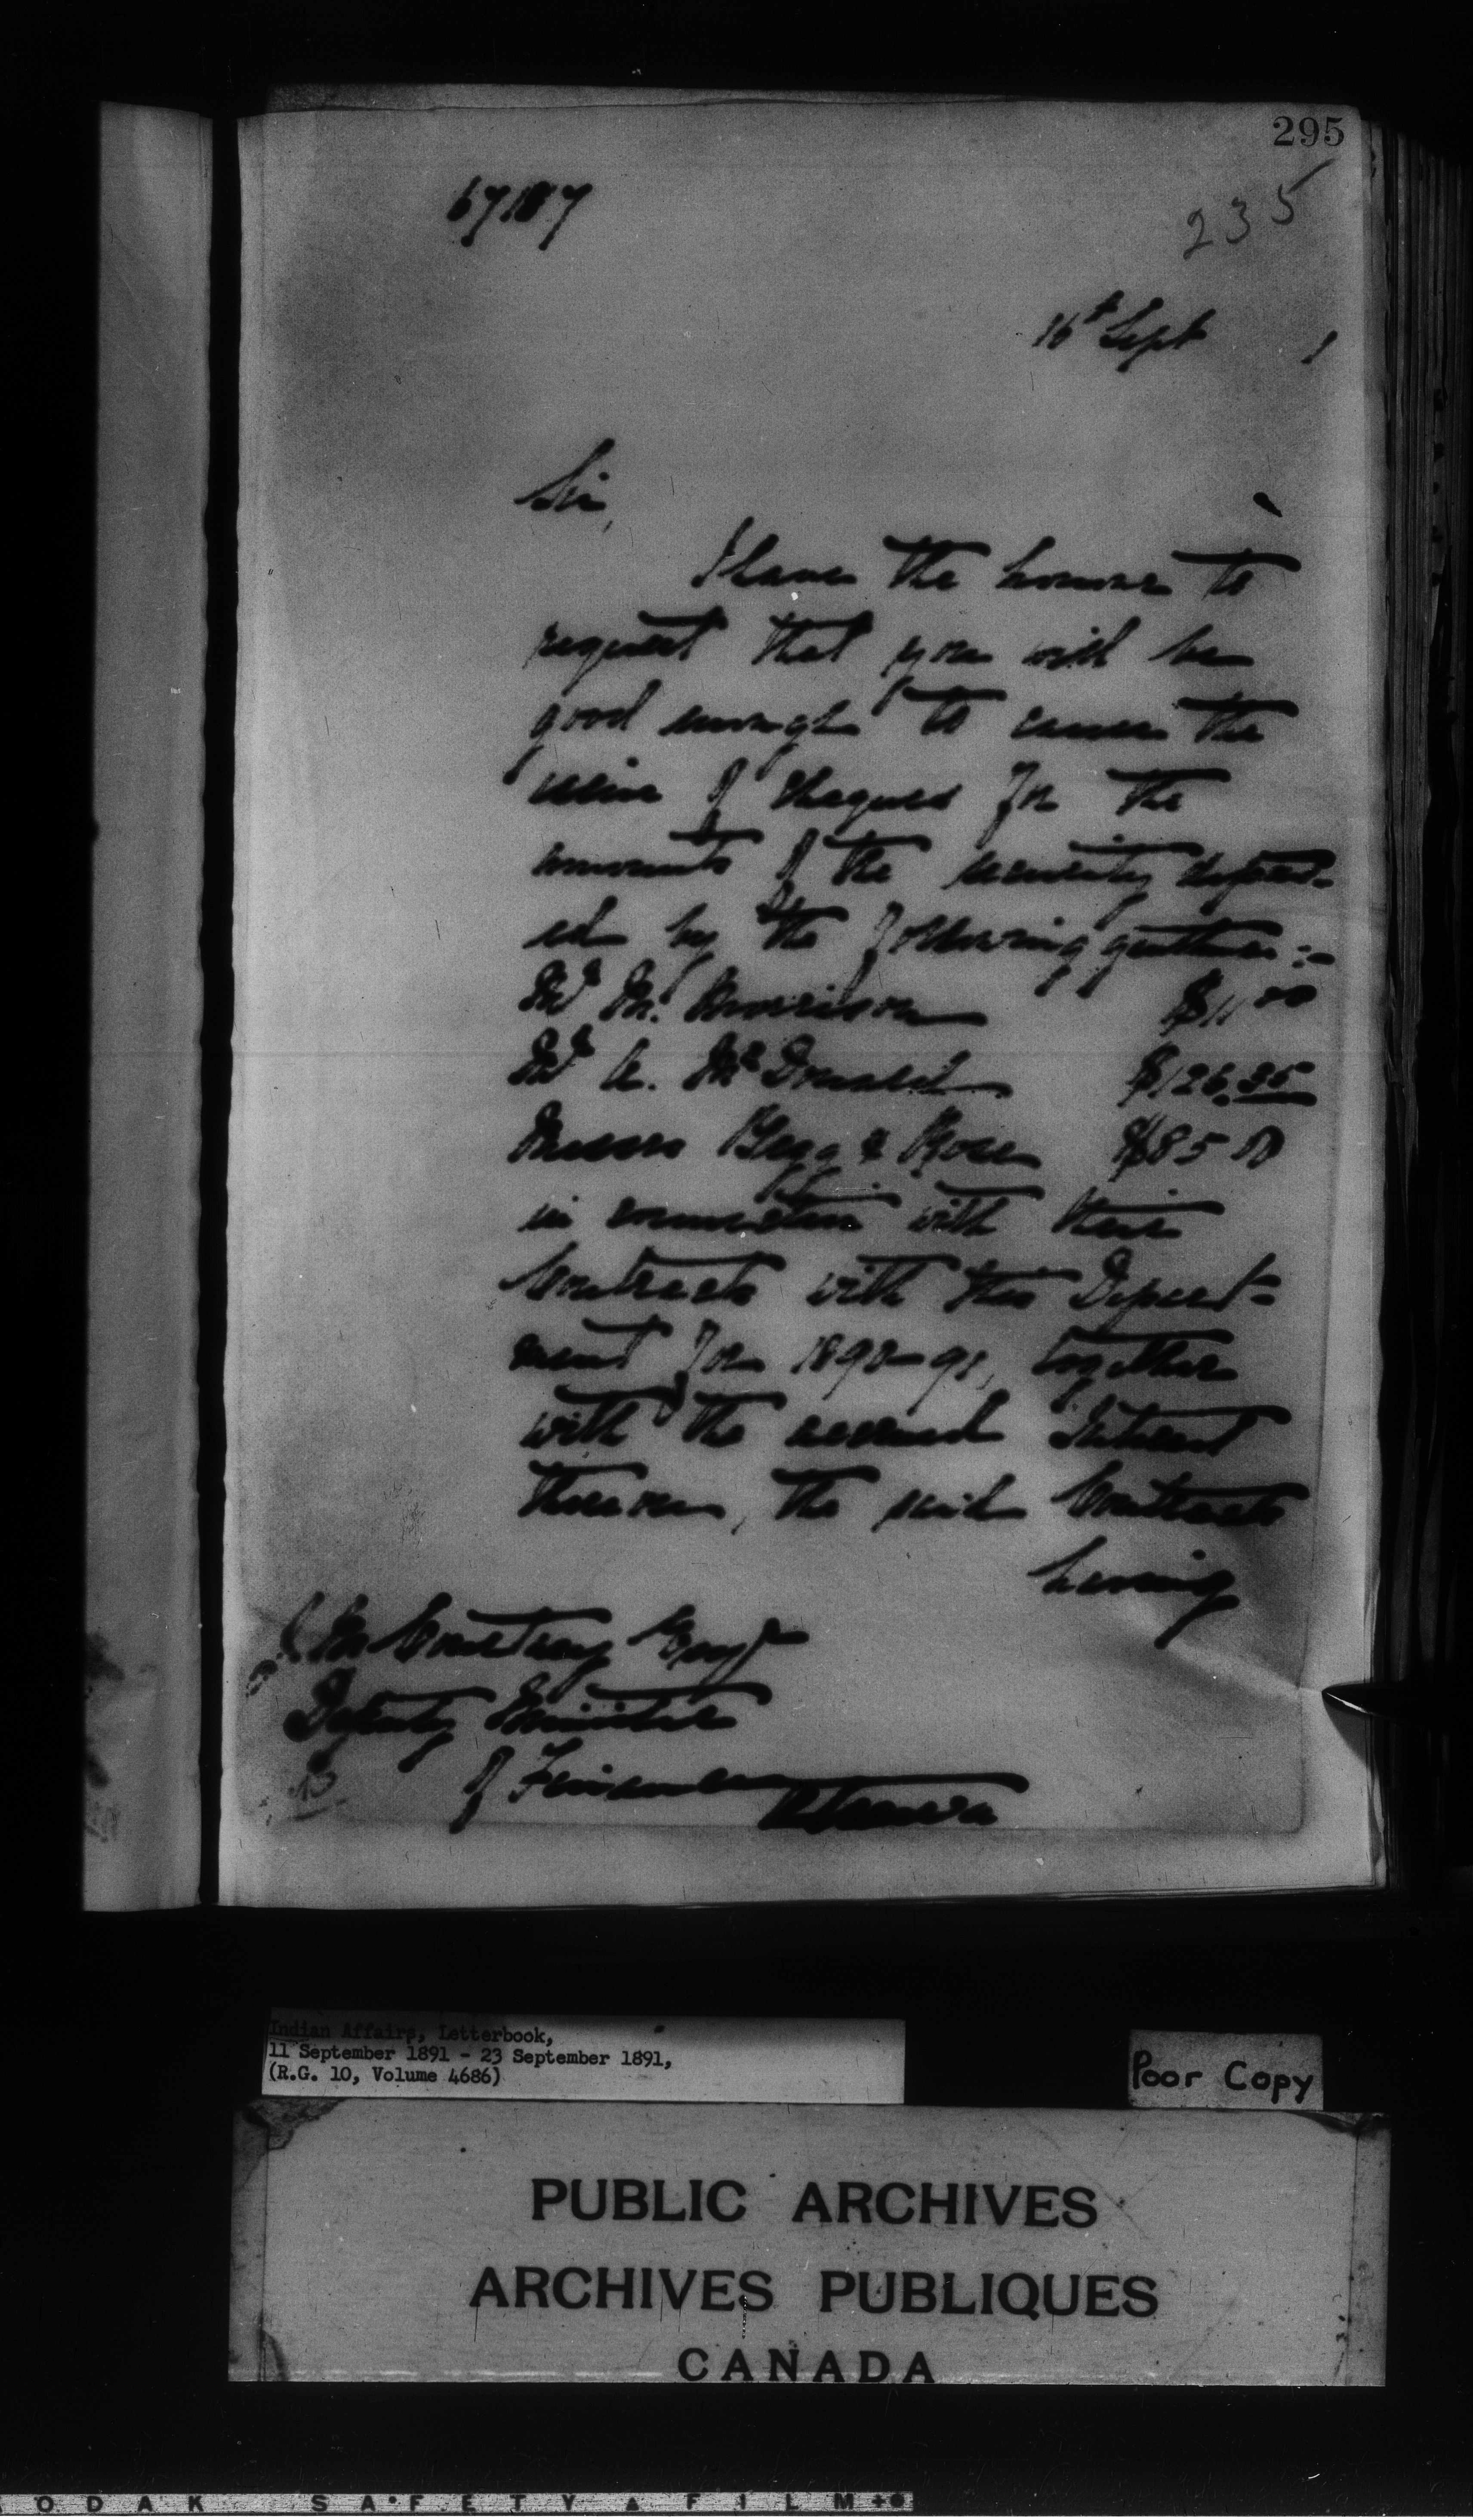 295
67187
235
16th Sept 1
Sir,
I have the honour to
request that you will be
good enough to cause the
issue of cheques for the
amounts of the security deposit-
ed by the following gentlemen:-
Mr M. Morrison $11 00
Mr A. McDonald $126.35
Messrs Begg & Rose $85 00
in connection with their
Contracts with this Depart-
ment for 1890-91, together
with the accrued Interest
thereon, the said Contracts
having
J. M. Courtney Esqr
Deputy Minister
of Finance
Ottawa
Indian Affairs, Letterbook,
11 September 1891 - 23 September 1891,
(R.G. 10, Volume 4686)
Poor Copy
PUBLIC ARCHIVES
ARCHIVES PUBLIQUES
CANADA
ODAK SAFETY FILM